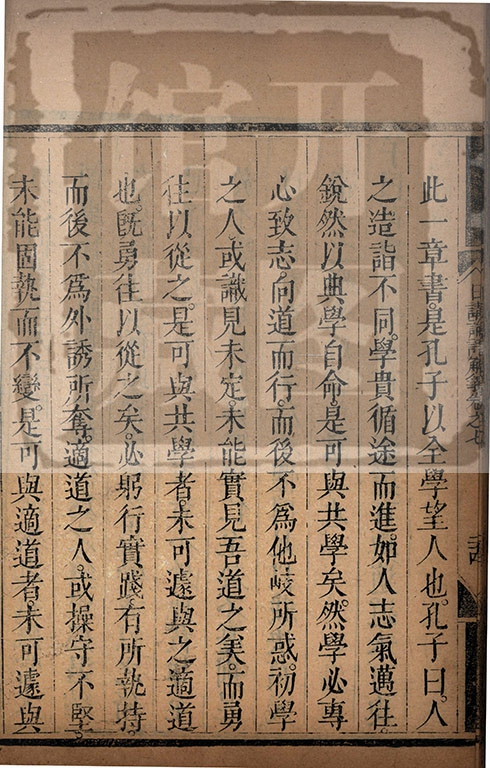 此一章書。是孔子以全學望人也。孔子曰。人
之造詣不同。學貴循途而進。如人志氣邁往。
銳然以典學自命。是可與共學矣。然學必專
心致志。向道而行。而後不為他岐所惑。初學
之人。或識見未定。未能實見吾道之矣。而勇
往以從之。是可與共學者。未可遽與之適道
也。旣勇往以從之矣。必躬行實踐。有所執持。
而後不為外誘所奪。適道之人。或操守不堅。
未能固執而不變。是可與適道者。未可遽與